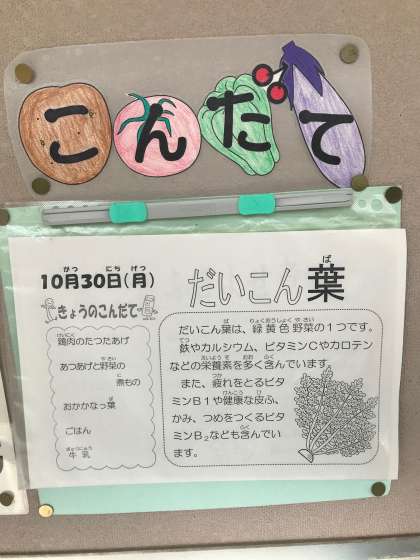 こんだて
10月30日(月)
きょうのこんだて
鶏肉のたつたあげ
あつあげと野菜の
煮もの
おかかなっ葉
ごはん
牛乳
だいこん葉
だいこん葉は、緑黄色野菜の1つです。
鉄やカルシウム、ビタミンCやカロテン
などの栄養素を多く含んでいます。
また、疲れをとるビタ
ミンB1や健康な皮ふ、
かみ、つめをつくるビタ
ミンB₂なども含んでい
ます。